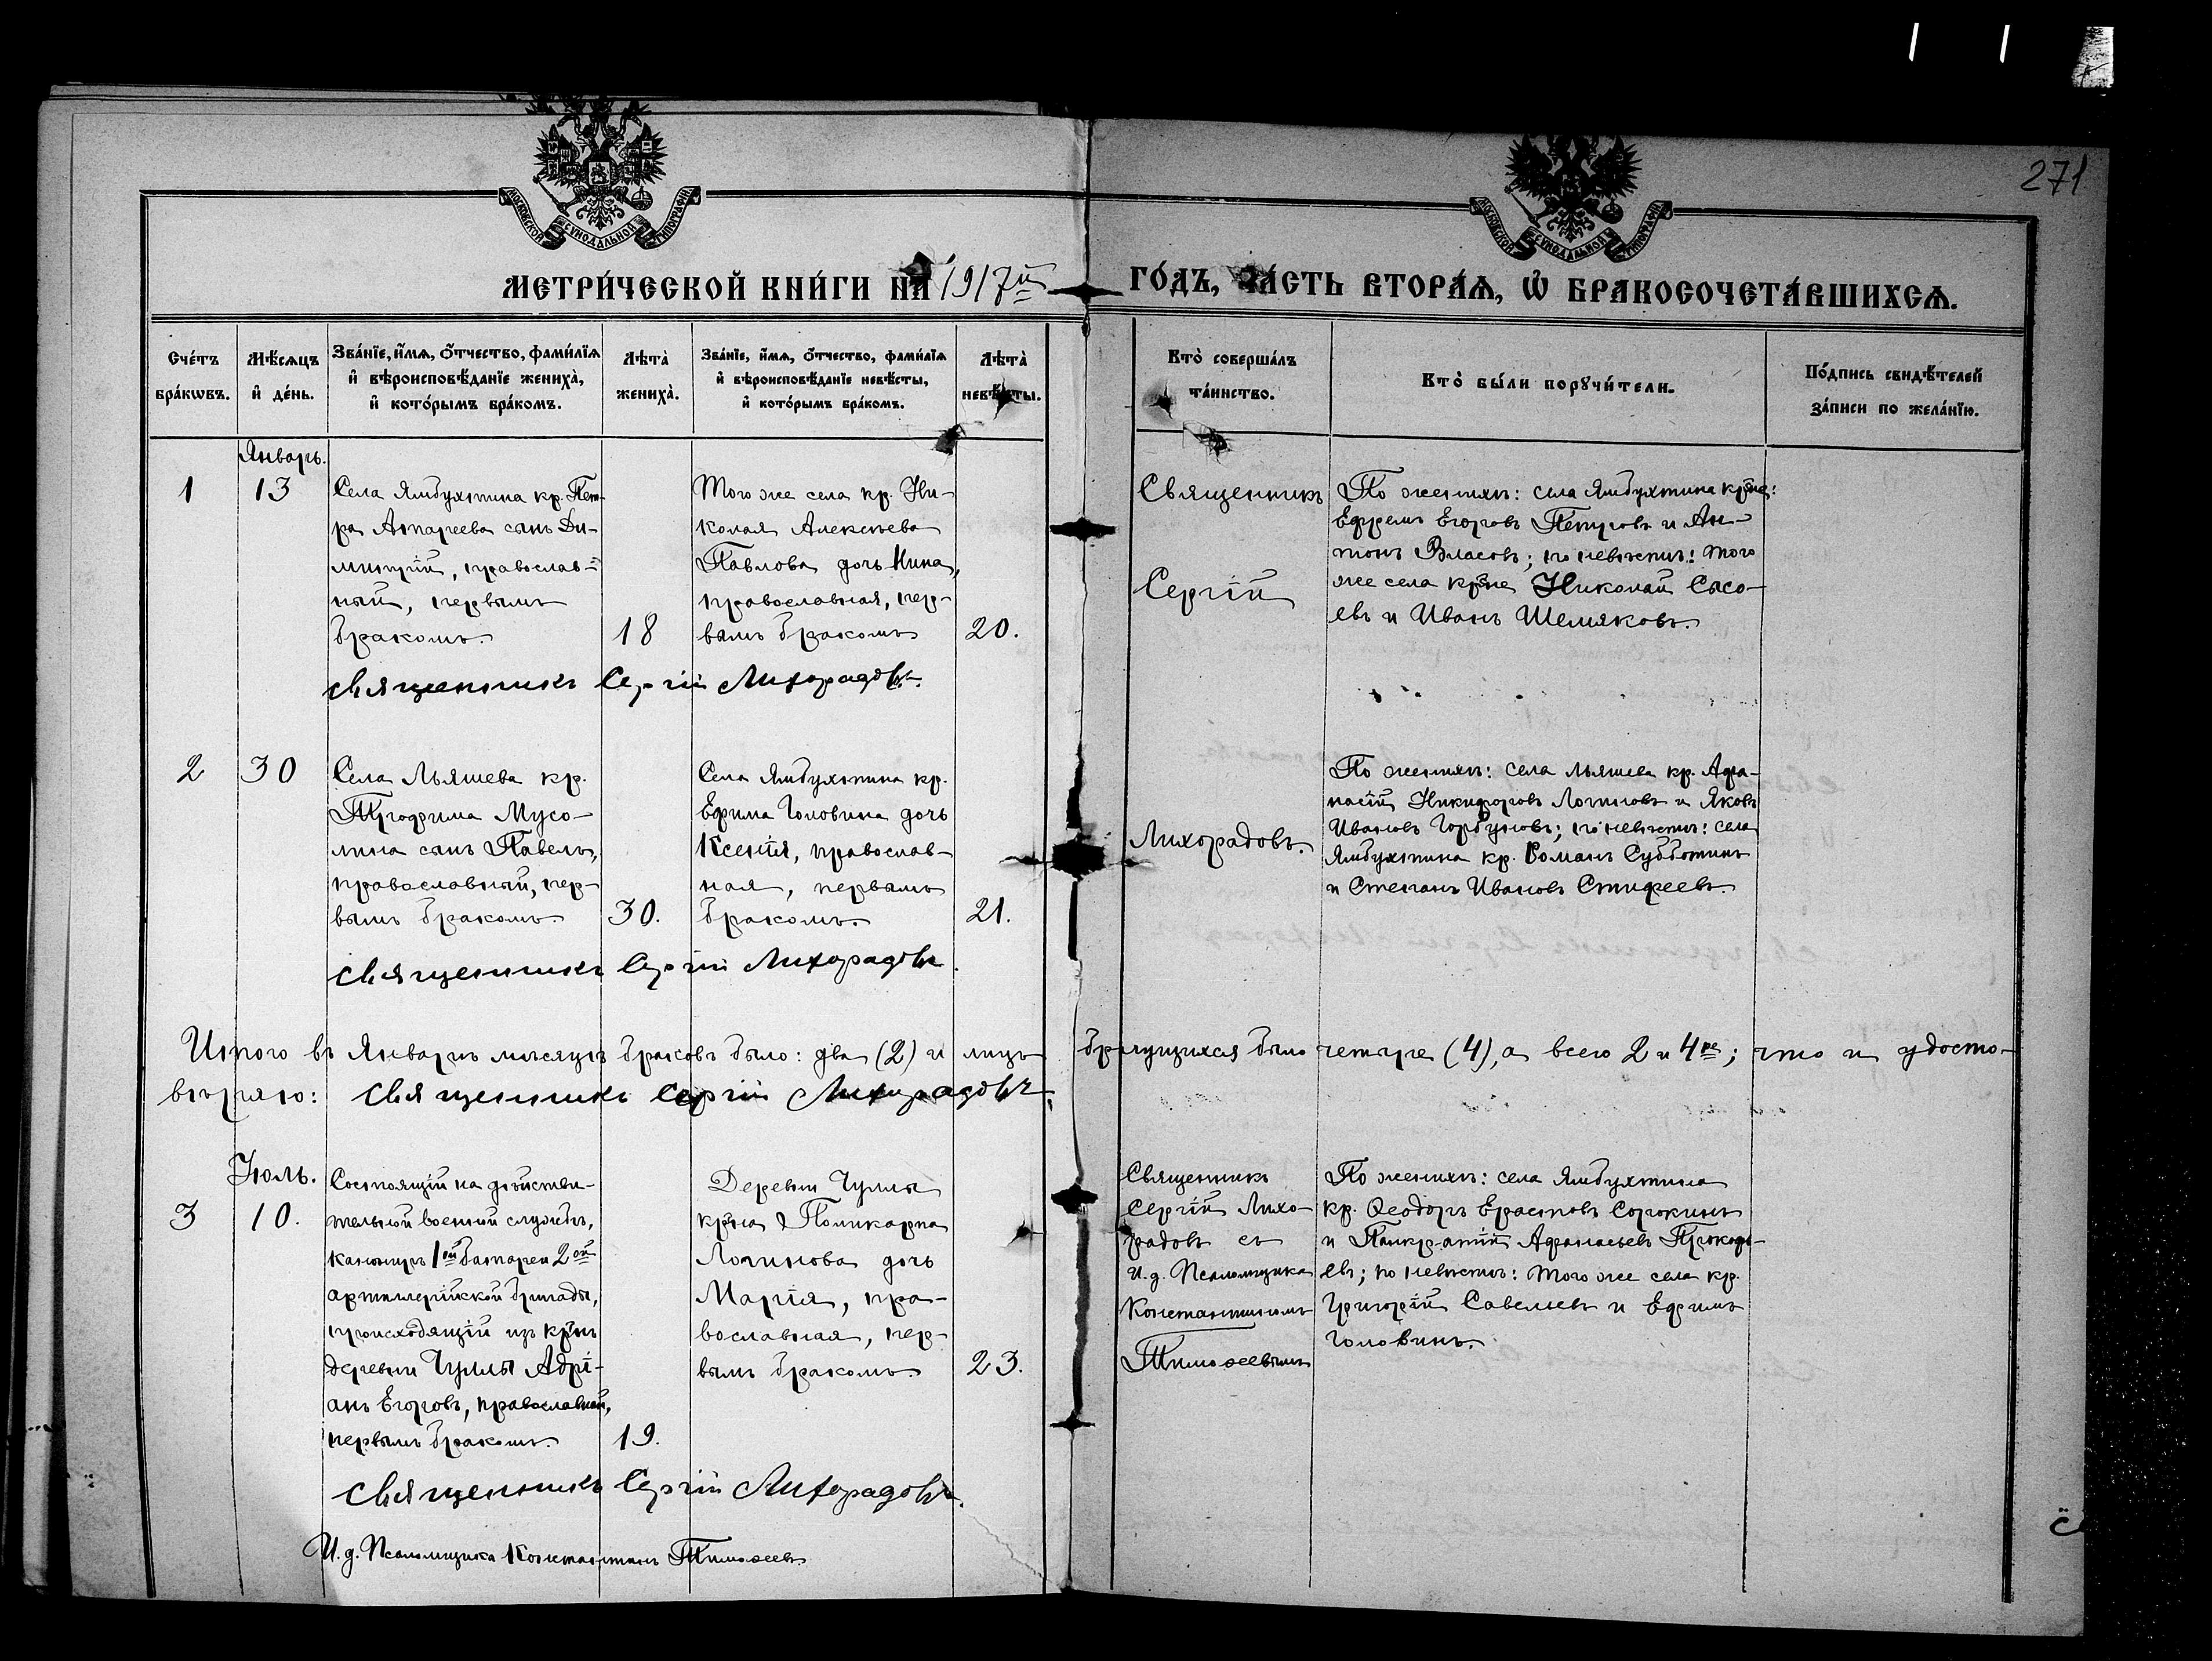 271
МОСКОВСКОЙ СУНОДАЛЬНОЙ ТИПОГРАФІИ
МОСКОВСКОЙ СУНОДАЛЬНОЙ ТИПОГРАФІИ
МЕТРИ́ЧЕСКОЙ КНИ́ГИ НА 1917й ГО́ДЪ, ЧА́СТЬ ВТОРА́Ѧ, Ѡ БРАКОСОЧЕТА́ВШИХСѦ.
Сче́тъ бра́кѡвъ.
Мѣ́сѧцъ и҆ де́нь.
Зва́нїе, и҆́мѧ, ѻ҆́тчество, фами́лїѧ
и҆ вѣроисповѣ́данїе жениха̀,
и҆ кото́рымъ бра́комъ.
Лѣта̀ жениха̀.
Зва́нїе, и҆́мѧ, ѻ҆́тчество, фами́лїѧ
и҆ вѣроисповѣ́данїе невѣ́сты,
и҆ кото́рымъ бра́комъ.
Лѣта̀ невѣ́сты.
Кто̀ соверша́лъ
та́инство.
Кто̀ бы́ли порꙋчи́тели.
По́дпись свидѣ́телей
за́писи по жела́нїю.
Январь.
1
13
Села Ямбухтина кр. Пет-
ра сынъ Ди-
митрій, православ-
ный, первымъ
бракомъ.
18
Того же села кр. Ни-
колая Алексѣева
Павлова дочь Нина,
православная, пер-
вымъ бракомъ
20.
Священникъ
Сергій
Лихорадовъ.
По женихѣ: села Ямбухтина кр-не:
Ефремъ Егоровъ Петровъ и Ан-
тонъ Власовъ; по невѣстѣ: того
же села кр-не Николай Сысо-
евъ и Иванъ Шемяковъ.
Священникъ Сергій Лихорадовъ.
2
30
Села Льяшева кр.
Трофима Мусо-
лина сынъ Павелъ,
православный, пер-
вымъ бракомъ.
30.
Села Ямбухтина кр.
Ефима Головина дочь
Ксенія, православ-
ная, первымъ
бракомъ.
21.
По женихѣ: села Льяшева кр. Афа-
насій Никифоровъ Логиновъ и Яковъ
Ивановъ Горбуновъ; по невѣстѣ: села
Ямбухтина кр. Романъ Субботинъ
и Степанъ Ивановъ Стифеевъ.
Священникъ Сергій Лихорадовъ
Итого въ Январѣ мѣсяцѣ браковъ было: два (2) и лицъ брачущихся было четыре (4), а всего 2 и 4ре; что и удосто-
вѣряю: Священникъ Сергій Лихорадовъ.
Іюль.
3
10.
Состоящій на дѣйстви-
тельной военной службѣ,
канониръ 1ой батареи 2ой
артиллерійской бригады,
происходящій изъ кр-нъ
деревни Чуллы Адрі-
анъ Егоровъ, православный,
первымъ бракомъ.
19.
Деревни Чуллы
кр-на Поликарпа
Логинова дочь
Марія, пра-
вославная, пер-
вымъ бракомъ.
23.
Священникъ
Сергій Лихо-
радовъ съ
и.д. Псаломщика
Константиномъ
Тимоѳеевымъ
По женихѣ: села Ямбухтина
кр. Ѳеодоръ Ерастовъ Сорокинъ
и Панкратій Афанасьевъ Прокофь-
евъ; по невѣстѣ: того же села кр.
Григорій Савельевъ и Ефимъ
Головинъ.
Священникъ Сергій Лихорадовъ.
И. д. Псаломщика Константинъ Тимоѳеевъ